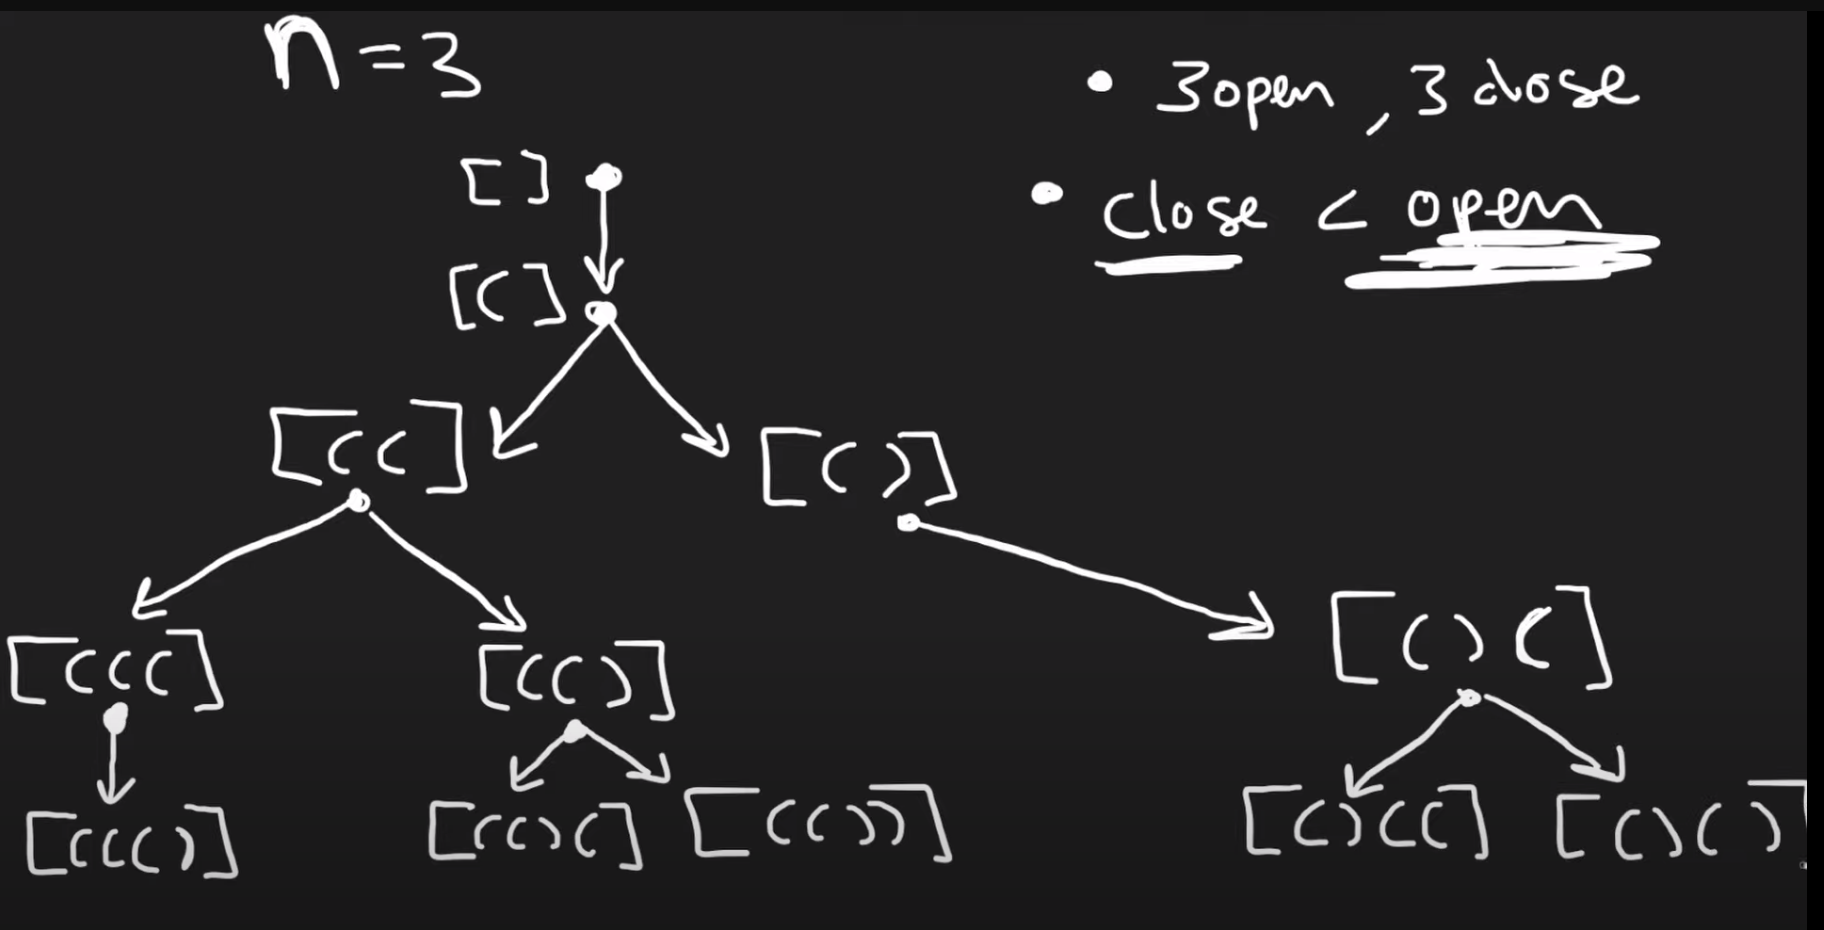 n=3
• 3 open, 3 close
[]
• close < open
[(]
[((]
[()]
[(((]
[(()]
[()(]
[((()]
[(()(]
[(())]
[()((]
[()()